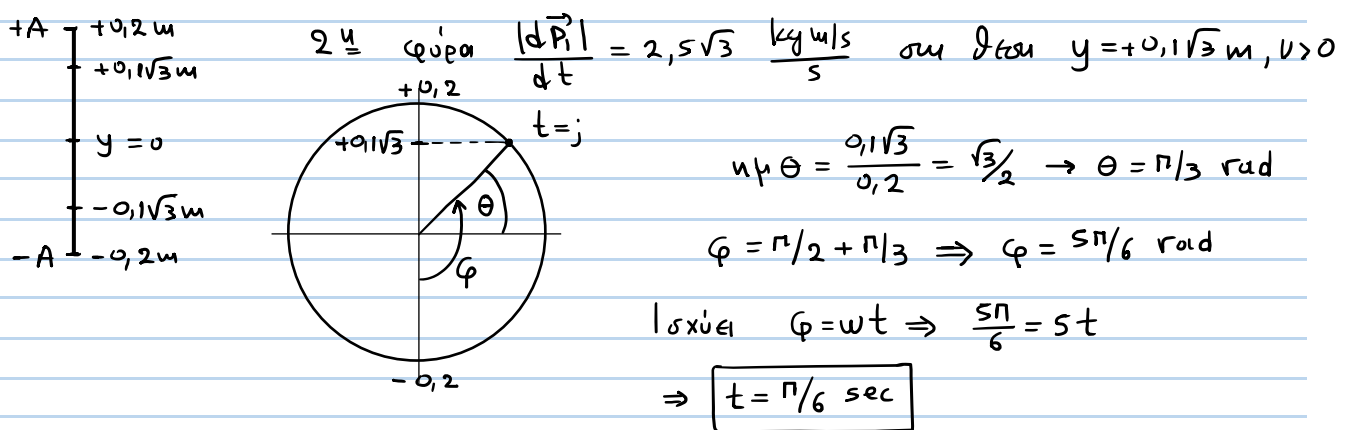 +A +0,2 m
+0,1√3 m
y = 0
-0,1√3 m
-A -0,2 m
2η φορα |dP⃗₁|/dt = 2,5√3 kg m/s / s στη θεση y = +0,1√3 m, υ>0
+0,2
+0,1√3
t = ;
θ
φ
-0,2
ημθ = 0,1√3/0,2 = √3/2 → θ = π/3 rad
φ = π/2 + π/3 ⇒ φ = 5π/6 rad
Ισχύει φ = ωt ⇒ 5π/6 = 5t
⇒ t = π/6 sec